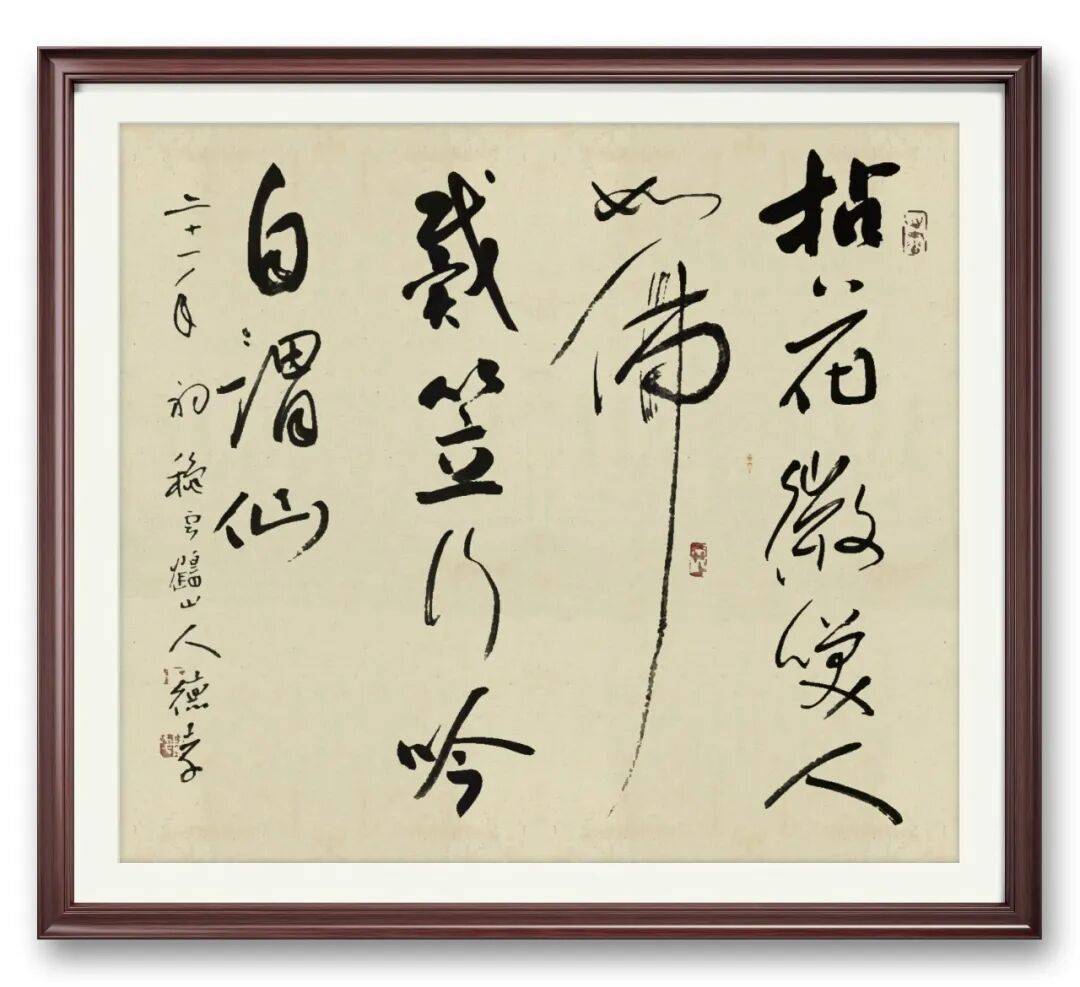 拈花微笑人
如佛
戴笠行吟
自謂仙
二十一年初秋云鶴山人德孝